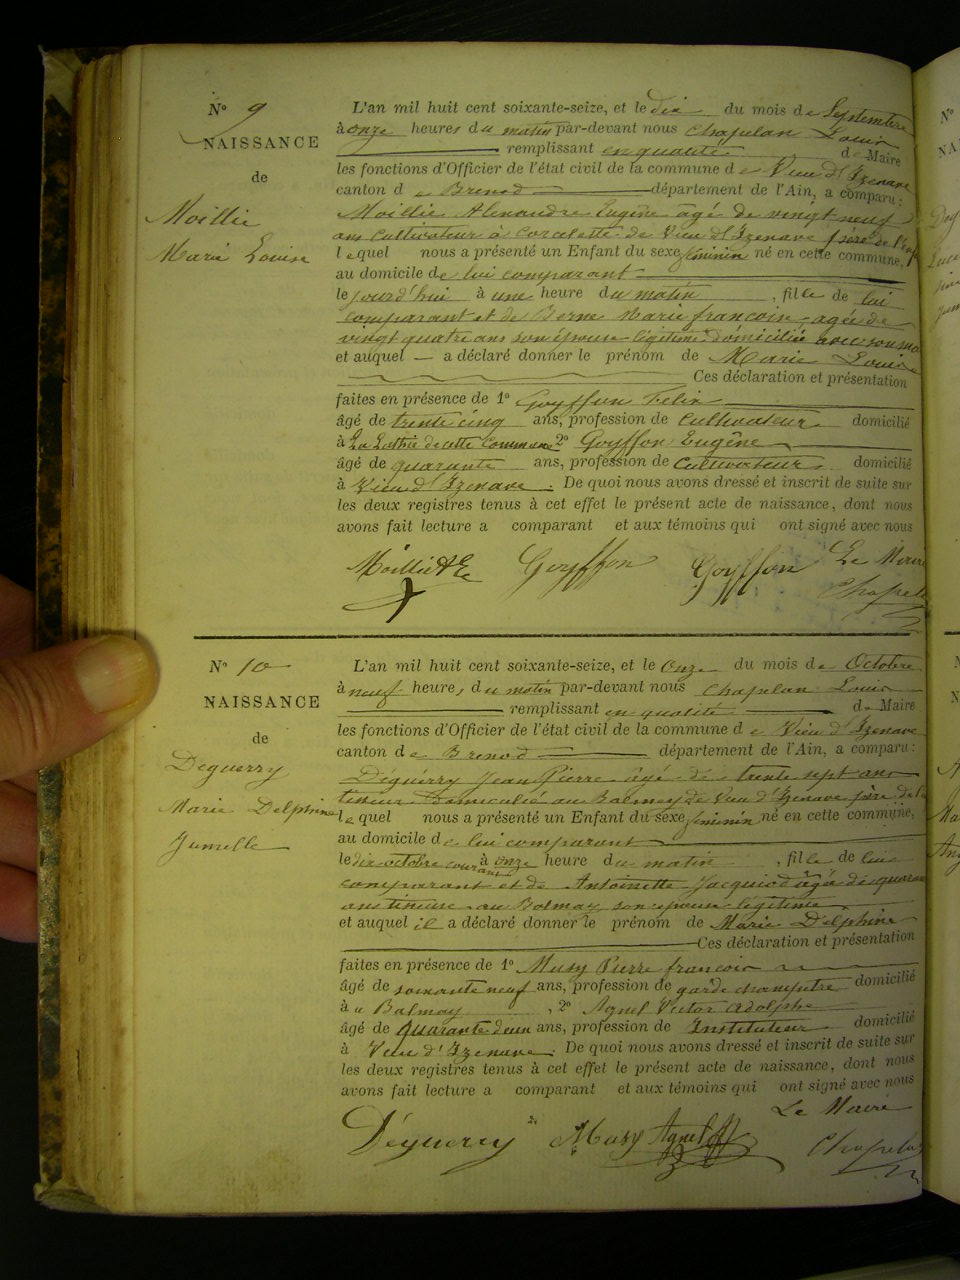 N° 9
NAISSANCE
de
Moillie
Marie Louise
L'an mil huit cent soixante-seize, et le dix du mois de Septembre
à onze heures du matin par-devant nous Chapelan Louis
remplissant en qualité de Maire
les fonctions d'Officier de l'état civil de la commune de Vieu d'Izenave
canton de Brenod département de l'Ain, a comparu :
Moillie Alexandre Eugène âgé de vingt neuf
ans cultivateur à Corcelette de Vieu d'Izenave père de l'enf
lequel nous a présenté un Enfant du sexe féminin né en cette commune,
au domicile de lui comparant
le jourd'hui à une heure du matin , fille de lui
comparant et de Berne Marie françoise, agée de
vingt quatre ans son épouse légitime domiciliée avec son ma
et auquel a déclaré donner le prénom de Marie Louise
Ces déclaration et présentation
faites en présence de 1° Goyffon Félix
âgé de trente cinq ans, profession de cultivateur domicilié
à La de cette commune 2° Goyffon Eugêne
âgé de quarante ans, profession de cultivateur domicilié
à Vieu d'Izenave. De quoi nous avons dressé et inscrit de suite sur
les deux registres tenus à cet effet le présent acte de naissance, dont nous
avons fait lecture a comparant et aux témoins qui ont signé avec nous
Moillie AE Goyffon Goyffon Le Maire
Chapela
N° 10
NAISSANCE
de
Deguerry
Marie Delphine
Jumelle
L'an mil huit cent soixante-seize, et le Onze du mois de Octobre
à neuf heures du matin par-devant nous Chapelan Louis
remplissant en qualité de Maire
les fonctions d'Officier de l'état civil de la commune de Vieu d'Izenave
canton de Brenod département de l'Ain, a comparu :
Déguerry Jean Pierre âgé de trente sept ans
tisseur domicilié au Balmay de Vieu d'Izenave père de l'e
lequel nous a présenté un Enfant du sexe féminin né en cette commune,
au domicile de lui comparant
le dix octobre courant à onze heure du matin , fille de lui
comparant et de Antoinette Jacquiod âgé de quaran
ans tisseuse au Balmay son épouse légitime
et auquel il a déclaré donner le prénom de Marie Delphine
Ces déclaration et présentation
faites en présence de 1° Musy Pierre françois
âgé de soixante neuf ans, profession de garde champêtre domicilié
à u Balmay , 2° Agnel Victor Adolphe
âgé de quarante deux ans, profession de Instituteur domicilié
à Vieu d'Izenave. De quoi nous avons dressé et inscrit de suite sur
les deux registres tenus à cet effet le présent acte de naissance, dont nous
avons fait lecture a comparant et aux témoins qui ont signé avec nous
Le Maire
Déguerry Musy Agnel Chapela